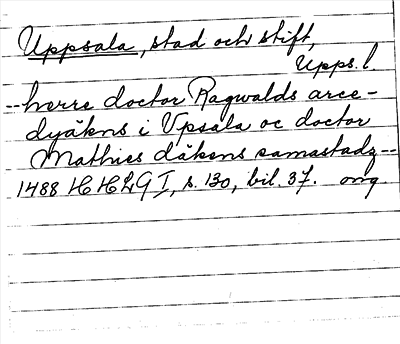 Uppsala, stad och stift,
Upps. l.
-- herre doctor Ragwalds arce-
dyäkns i Vpsala oc doctor
Mathies däkens samastadz --
1488 HHLG I, s. 130, bil. 37. omg